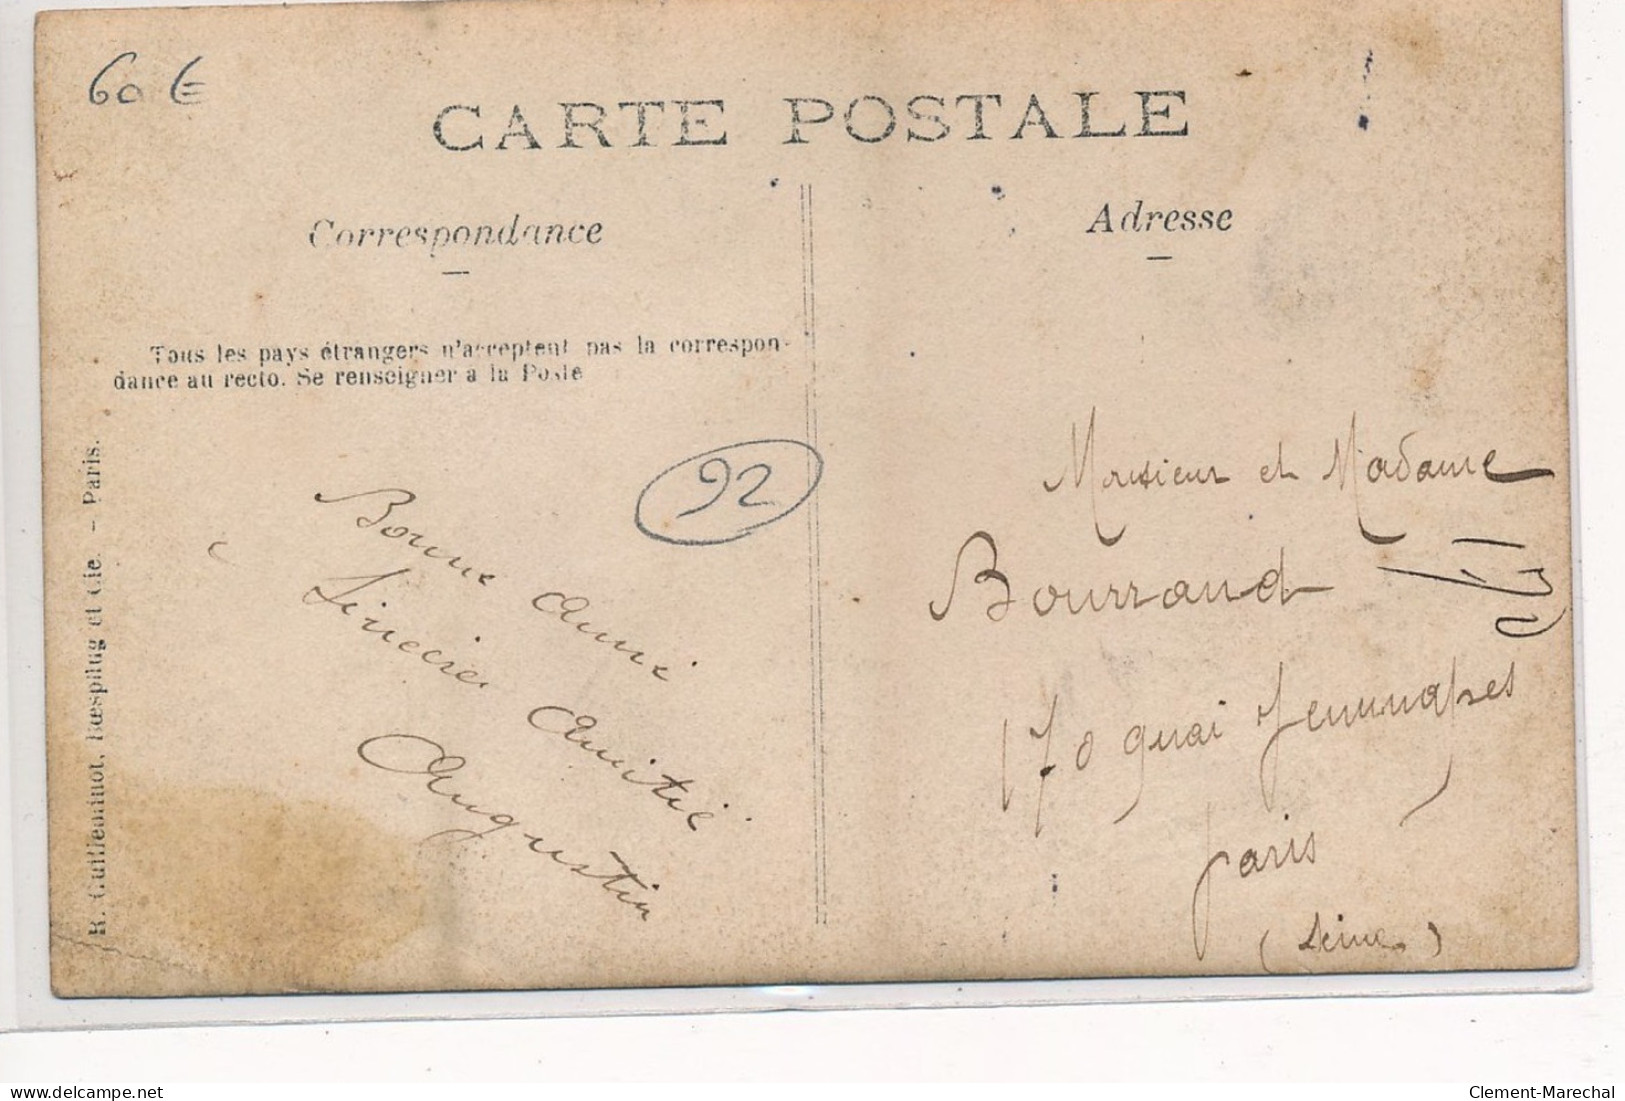 60 €
CARTE POSTALE
Correspondance
Tous les pays étrangers n'acceptent pas la correspon-
dance au recto. Se renseigner à la Poste
R. Guilleminot, Bœspflug et Cie. - Paris.
92
Bonne Amie
Sincère Amitié
Augustin
Adresse
Monsieur et Madame
Bourrand
170 quai Jemmapes
Paris
(Seine)
delcampe.net
Clement-Marechal